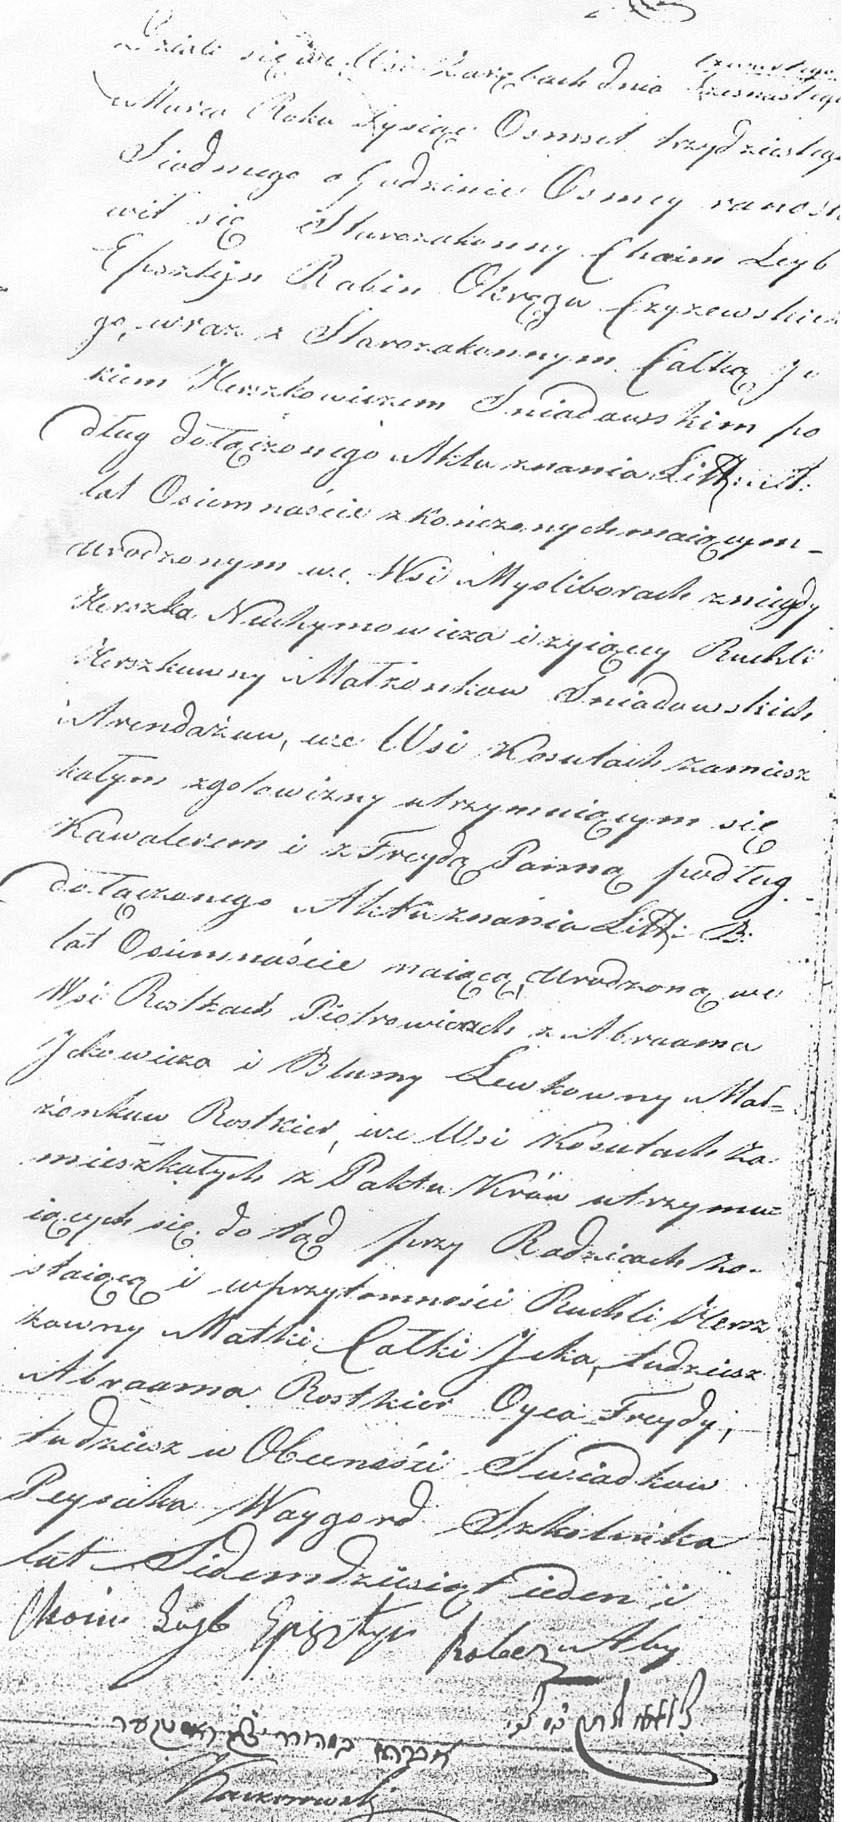 Działo się we Wsi Zarębach dnia Szesnastego
Marca Roku Tysiąc Osmset trzydziestego
Siodmego o Godzinie Osmey rano st
wił się Starozakonny Chaim Leyb
Epsztyn Rabin Okręgu Czyzewskie
go, wraz z Starozakonnym Calką Jc
kiem Herszkowiczem Sniadowskim po
dług dołączonego Aktu znania Litt: A:
lat Osiemnaście zkończonych maiącym
urodzonym we Wsi Mysliborach zniegdy
Herszka Nuchymowicza i zyiący Ruchli
Herszkowny Małzonkow Sniadowskich
Arendażuw, we Wsi Kosutach zamiesz
kałym zgotowizny utrzymuiącym się
Kawalerem i z Freydą Panną podług
dołączonego Aktu znania Litt: B:
lat Osiemnaście maiącą, Urodzoną we
Wsi Rostkach Piotrowicach z Abraama
Jckowicza i Blumy Lewkowny Mał=
żonkuw Rostkier, we Wsi Kosutach za
mieszkałych z Paktu Krów utrzymu=
iących się do tąd przy Rodzicach zo-
staiącą i wprzytomności Ruchli Hersz
kowny Matki Calki Jcka, tudziesz
Abraama Rostkier Oyca Freydy,
tudziesz w Obecności Swiadkow
Peysaka Waygord Szkolnika
lat Siedemdziesiąt ieden i
Choim Lejb Epsztyn Aby
אברהם